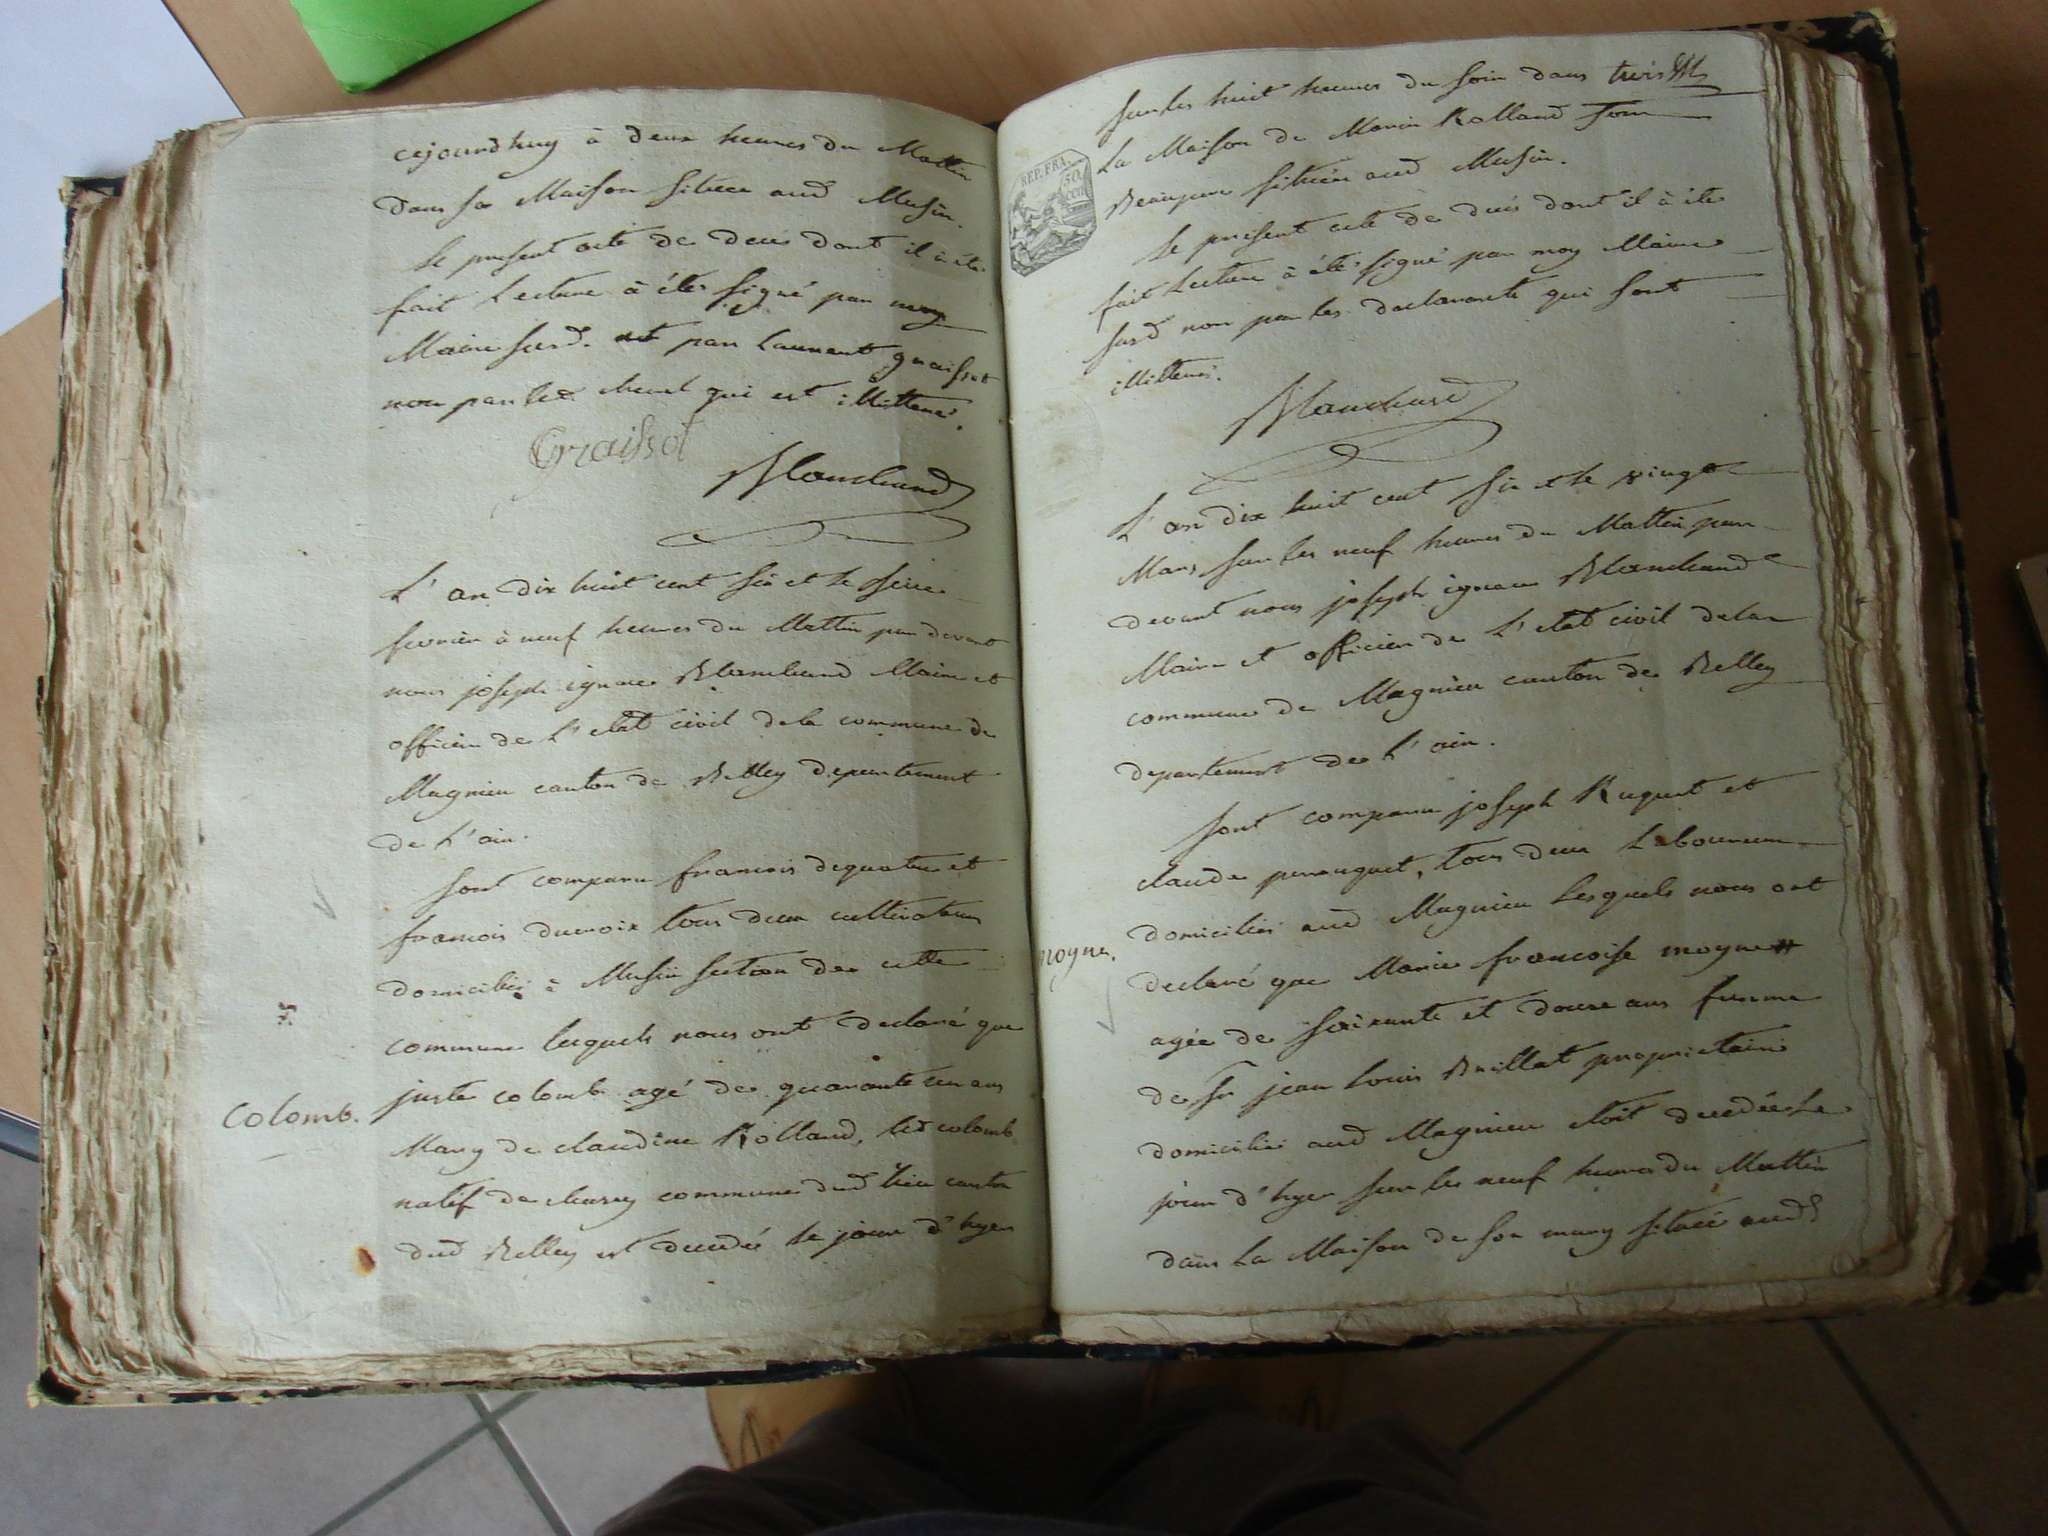 cejourdhuy à deux heures du Mattin
dans sa Maison situeé aud Musin.
le present acte de deces dont il à éte
fait Lecture à éte signé par moy
Maire susd. et par Laurent graissot
non par led. qui est illitteré.
Graissot
Blanchard
L'an dix huit cent six et le seize
fevrier à neuf heures du Mattin par devant
nous joseph ignace Blanchard Maire et
officier de L'etat civil dela commune de
Magnieu canton de Belley departement
de L'ain.
sont comparu francois dequatre et
francois ducroix tous deux cultivateurs
domiciliés à Musin section de cette
commune lesquels nous ont declaré que
Colomb.
juste colomb agé de quarante un ans
Mary de claudine Rolland, led colomb
natif de commune dud lieu canton
dud Belley est decedé le jour d'hyer
sur les huit heures du soir dans
La Maison de Marin Rolland
Beaupere située aud Musin.
le présent acte de decés dont il à éte
fait Lecture à éte signé par moy Maire
susd non par les declarants qui sont
illitterés.
Blanchard
REP. FRA.
50
cen
L'an dix huit cent six et le vingt
Mars sur les neuf heures du Mattin par
devant nous joseph ignace Blanchard
Maire et officier de L'etat civil dela
commune de Magnieu canton de Belley
departement de L'ain.
sont comparu joseph Ruguet et
claude perouquet, tous deux Laboureurs
domiciliés aud Magnieu Lesquels nous ont
moyne.
declaré que Marie francoise moyne
agée de soixante et douze ans femme
de Sr jean Louis Brillat proprietaire
domicilié aud Magnieu etoit decedée Le
jour d'hyer sur les neuf heures du Mattin
dans La Maison de son mary situeé aud